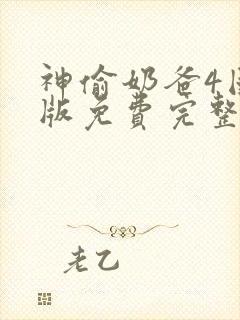 神偷奶爸4国
版免费完整
老乙